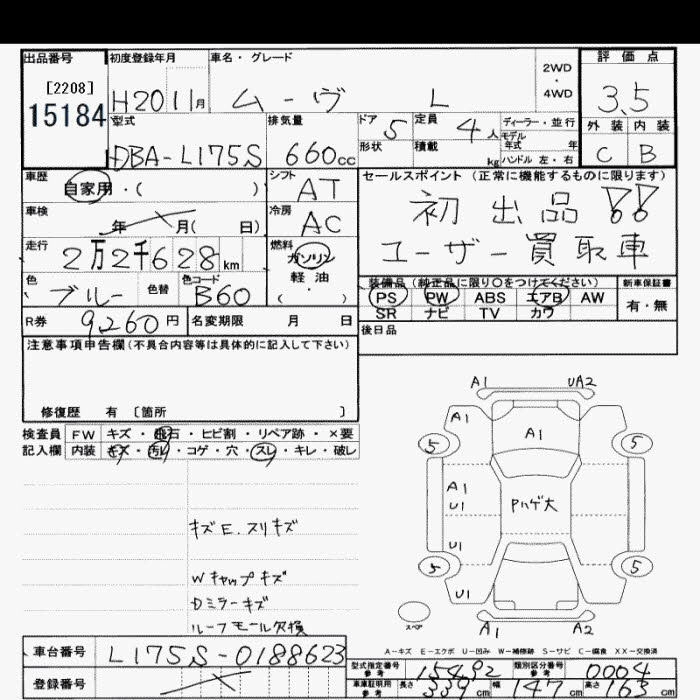 出品番号 初度登録年月 車名・グレード 2WD・4WD 評価点
[2208]
15184
H20 11月 ムーヴ L 3.5
型式 排気量 ドア 5 定員 4人 ディーラー・並行 外装 内装
DBA-L175S 660cc 形状 積載 kg モデル年式 年 C B
ハンドル 左・右
車歴 自家用・( ) シフト AT セールスポイント (正常に機能するものに限ります)
車検 年 月( 日) 冷房 AC 初出品!!
走行 2万2千628km 燃料 ガソリン ユーザー買取車
軽油
( )
色 ブルー 色替 色コード B60
装備品 (純正品に限り〇をつけてください) 新車保証書
PS PW ABS エアB AW 有・無
SR ナビ TV カワ
R券 9,260円 名変期限 月 日
後日品
注意事項申告欄(不具合内容等は具体的に記入して下さい)
修復歴 有 [箇所 ]
検査員 FW キズ・飛石・ヒビ割・リペア跡・×要
記入欄 内装 キズ・汚レ・コゲ・穴・スレ・キレ・破レ
キズE.スリキズ
Wキャップキズ
Dミラーキズ
ルーフモール欠損
A1 UA2
A1 A1
5 5
A1
U1 Pハゲ大
U1
5 5
U1
スペア A1 A2
A-キズ E-エクボ U-凹み W-補修跡 S-サビ C-腐食 XX-交換済
車台番号 L175S-0188623
登録番号
型式指定番号 参考 15492 類別区分番号 参考 0004
車庫証明用 参考 長さ 339cm 幅 147cm 高さ 163cm